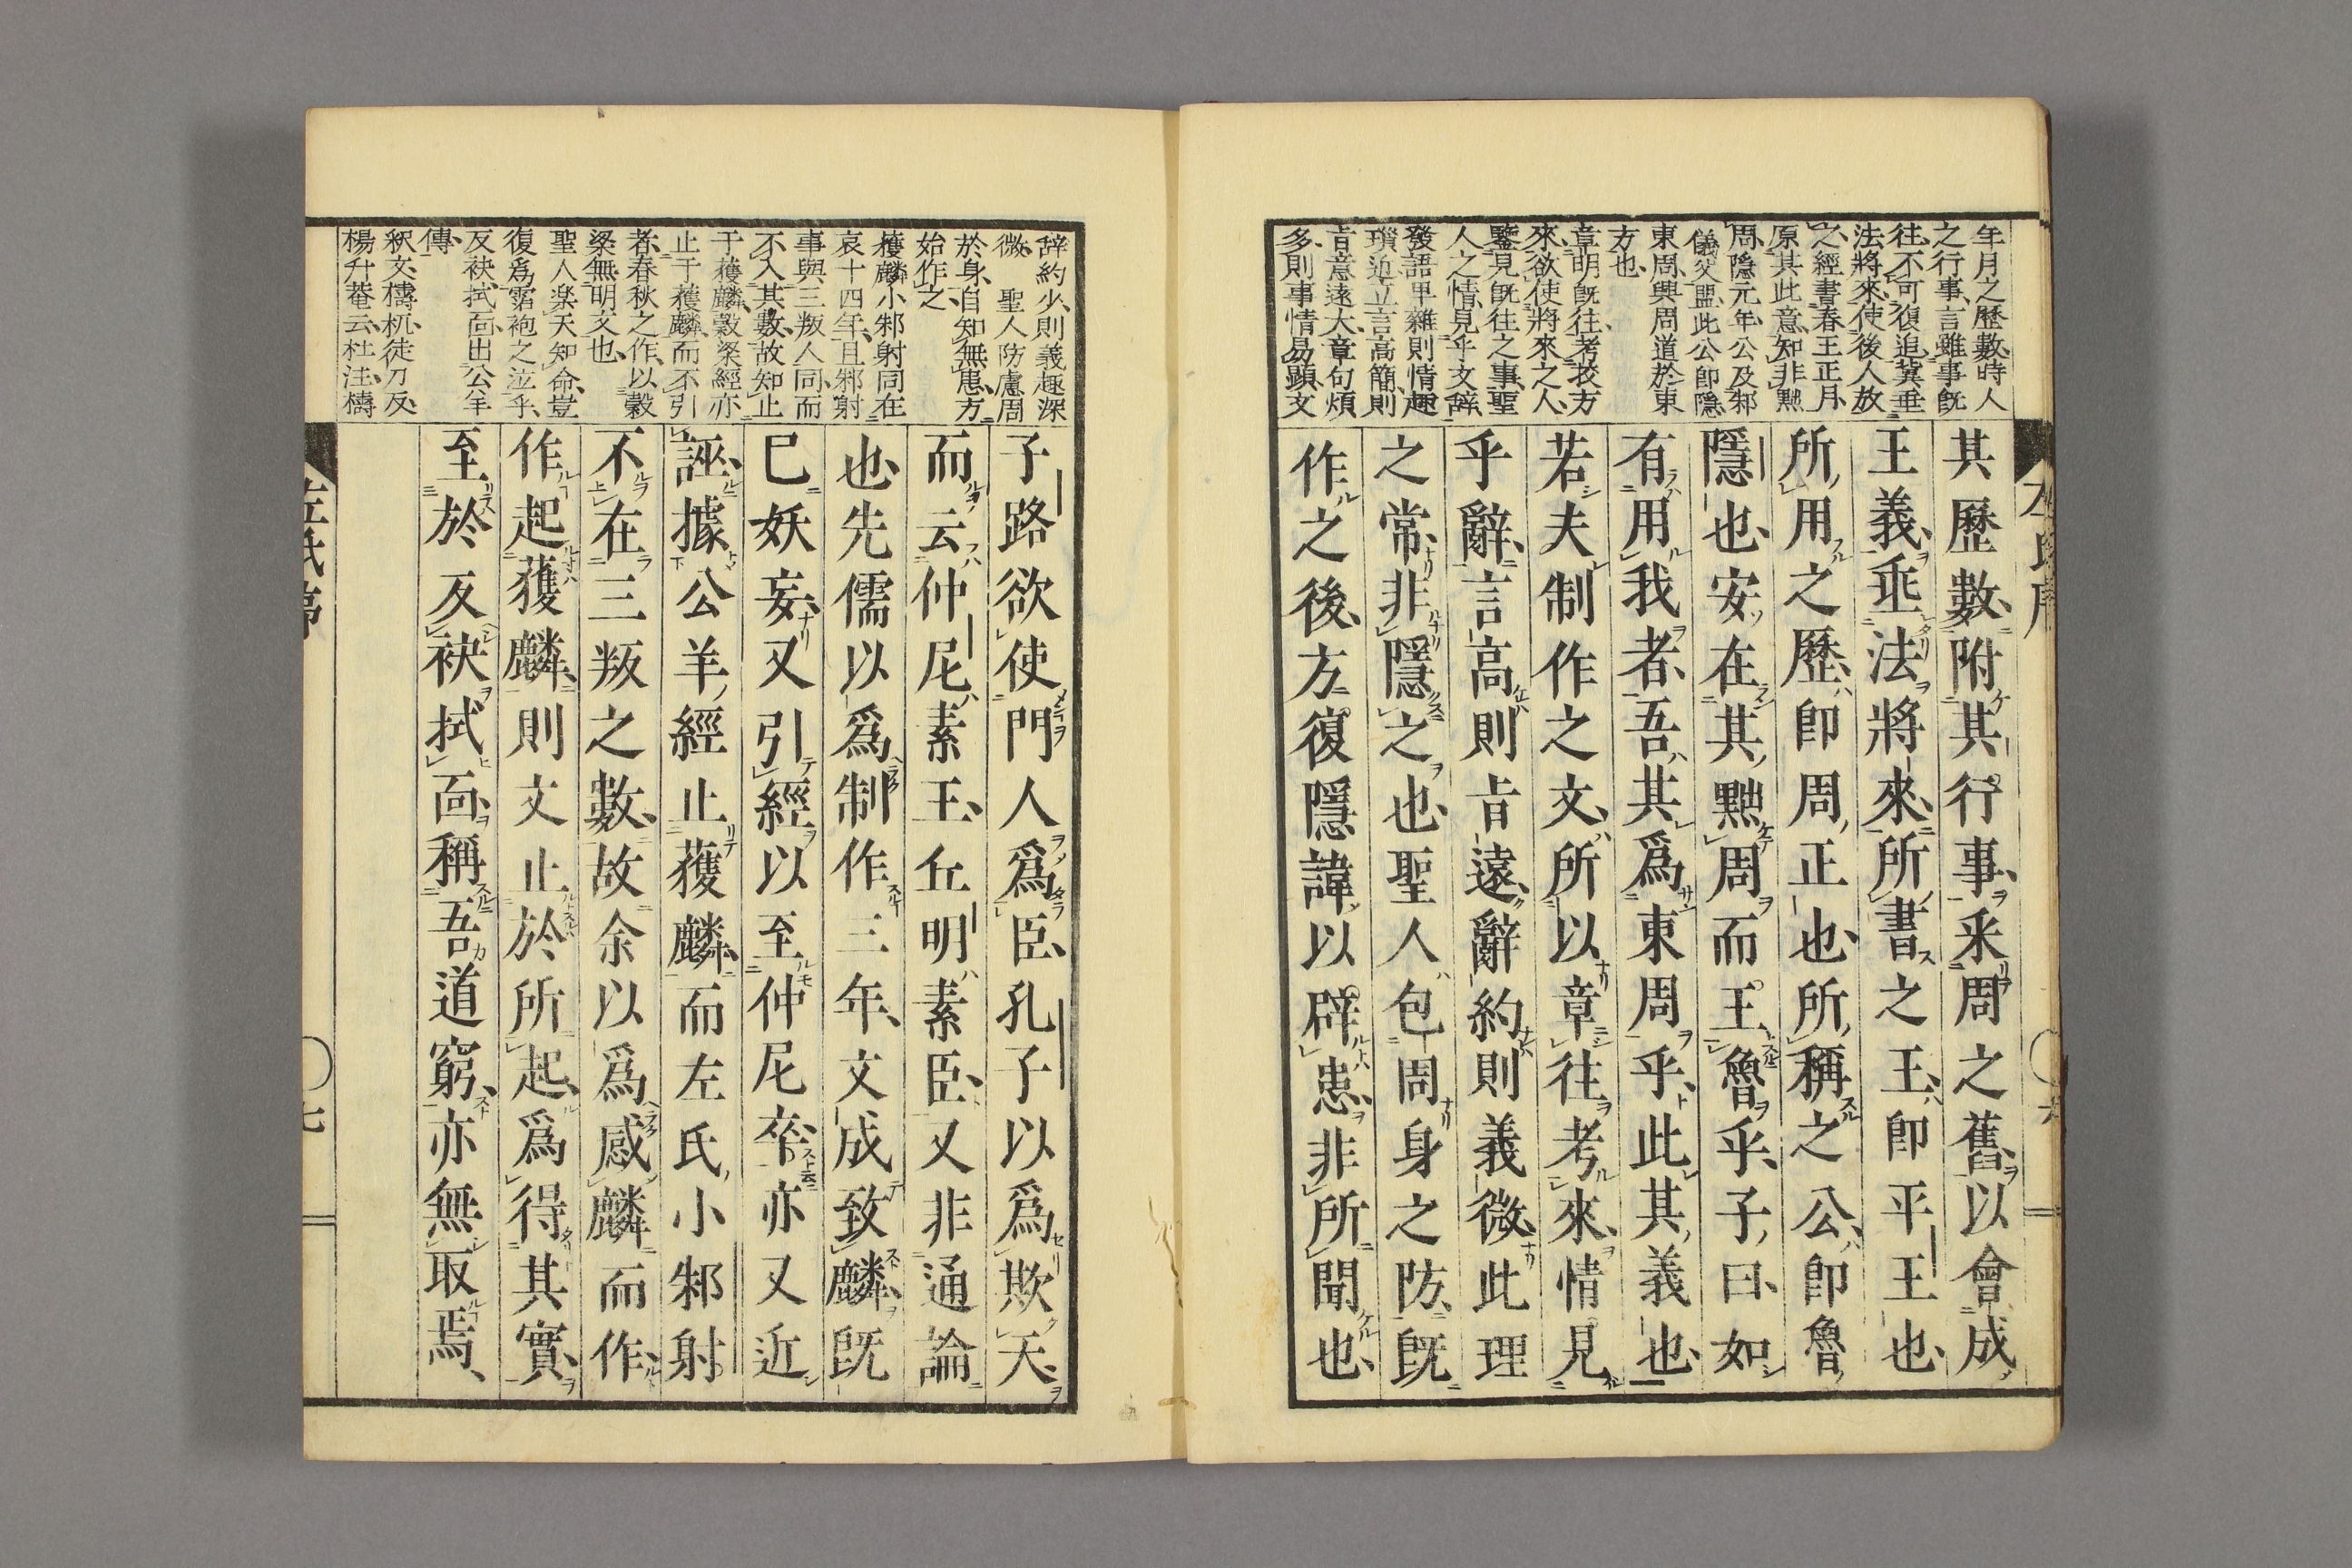 年月之歷數時人
之行事言雖事既
往不可復追冀垂
法將來使後人放
之經書春王正月
原其此意知非黜
周隱元年公及邾
儀父盟此公即隱
東周興周道於東
方也
章明既往考挍方
來欲使將來之人
鑒見既往之事聖
人之情見乎文辭
發語卑雜則情趣
瑣近立言高簡則
旨意遠大章句煩
多則事情易顯文
其歷數附其行事采周之舊以會成
王義垂法將來所書之王即平王也
所用之歷即周正也所稱之公即魯
隱也安在其黜周而王魯乎子曰如
有用我者吾其爲東周乎此其義也
若夫制作之文所以章往考來情見
乎辭言高則旨遠辭約則義微此理
之常非隱之也聖人包周身之防既
作之後方復隱諱以辟患非所聞也
辭約少則義趣深
微 聖人防慮周
於身自知無患方
始作之
獲麟小邾射同在
哀十四年且邾射
事與三叛人同而
不入其數故知止
于獲麟穀梁經亦
止于獲麟而不引
者春秋之作以穀
梁無明文也
聖人楽天知命豈
復爲霑袍之泣乎
反袂拭面出公羊
傳
釈文檮杌徒刀反
楊升菴云杜注檮
子路欲使門人爲臣孔子以爲欺天
而云仲尼素王丘明素臣又非通論
也先儒以爲制作三年文成致麟既
已妖妄又引經以至仲尼卒亦又近
誣據公羊經止獲麟而左氏小邾射
不在三叛之數故余以爲感麟而作
作起獲麟則文止於所起爲得其實
至於反袂拭面稱吾道窮亦無取焉
左氏序
七